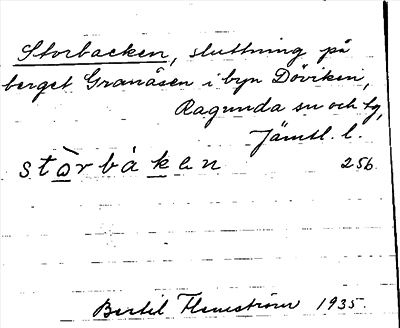 Storbacken, sluttning på
berget Granåsen i byn Döviken,
Ragunda sn och tg,
Jämtl. l.
stòrbàken 256.
Bertil Flemström 1935.